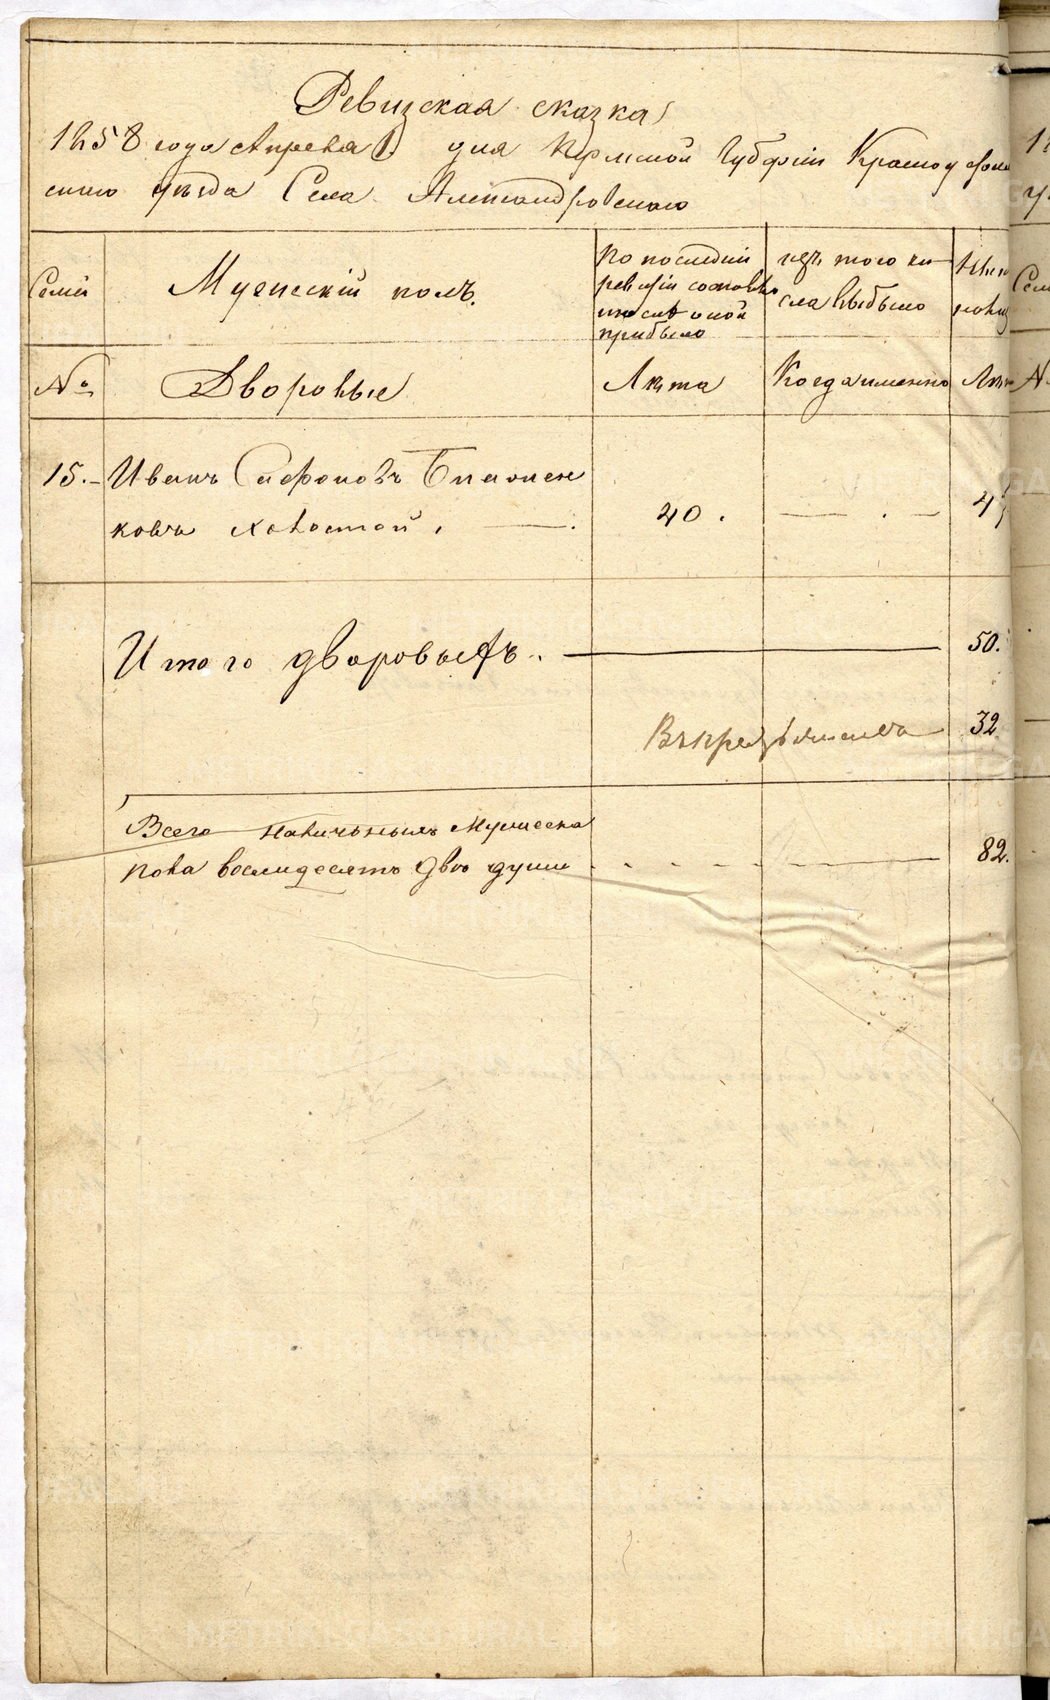 Ревизская сказка
1858 года Апреля 1 дня Пермской Губернiи Красноуфим
скаго уѣзда Села Александровскаго
Семьи
Мужескiй полъ.
По последней
ревизiи состояло
и после оной
прибыло
изъ того чи
сла выбыло
Ныне
налиц
№
Дворовые
Лѣта
Когда именно
Лѣт
15.
Иванъ Сафоновъ
ковъ холостой.
40.
Итого дворовыхъ.
50.
Въ крестьянехъ
32
Всего наличныхъ Мужеска
пола восмидесятъ две души
82.